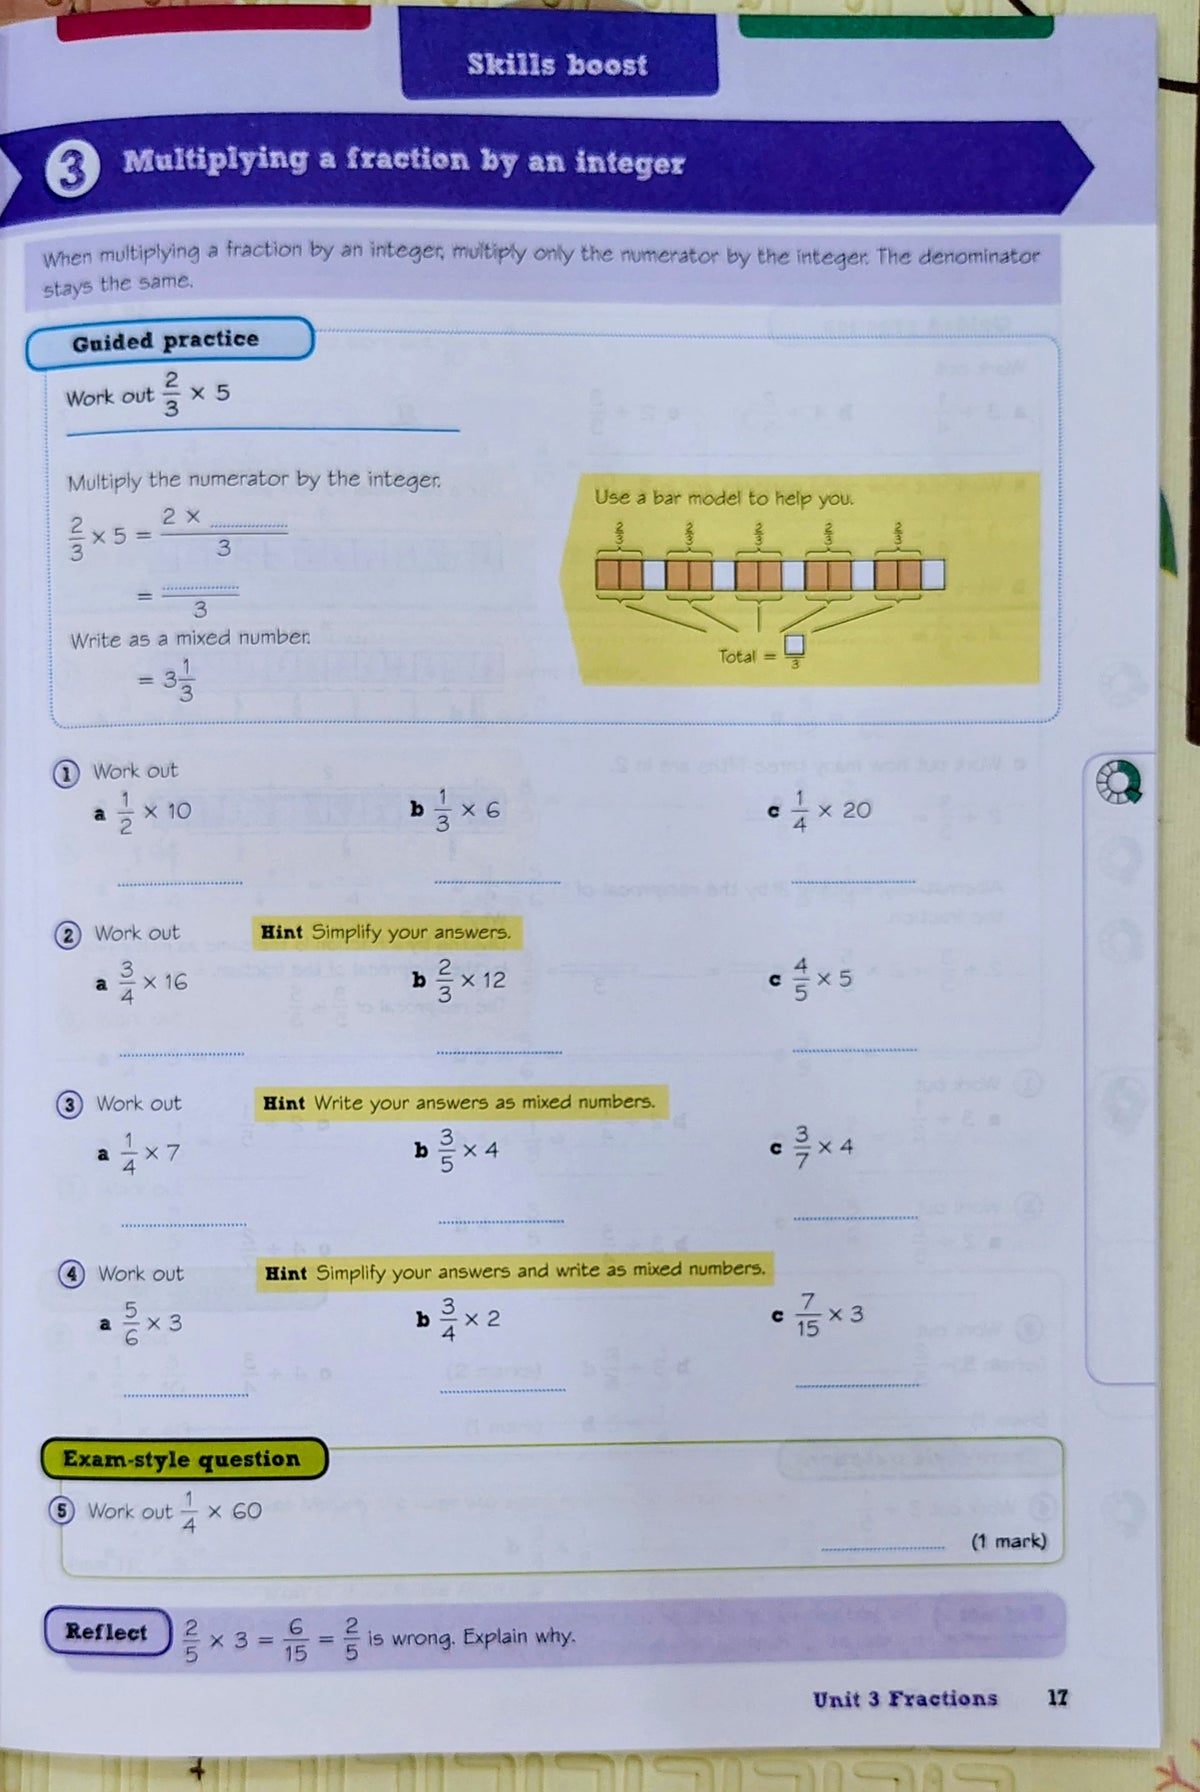 Skills boost
3 Multiplying a fraction by an integer
When multiplying a fraction by an integer, multiply only the numerator by the integer. The denominator
stays the same.
Guided practice
Work out 2/3 × 5
Multiply the numerator by the integer.
2/3 × 5 = 2 × ............/3
= ............/3
Write as a mixed number.
= 3 1/3
Use a bar model to help you.
2/3 2/3 2/3 2/3 2/3
Total = □/3
1 Work out
a 1/2 × 10 b 1/3 × 6 c 1/4 × 20
2 Work out Hint Simplify your answers.
a 3/4 × 16 b 2/3 × 12 c 4/5 × 5
3 Work out Hint Write your answers as mixed numbers.
a 1/4 × 7 b 3/5 × 4 c 3/7 × 4
4 Work out Hint Simplify your answers and write as mixed numbers.
a 5/6 × 3 b 3/4 × 2 c 7/15 × 3
Exam-style question
5 Work out 1/4 × 60
(1 mark)
Reflect 2/5 × 3 = 6/15 = 2/5 is wrong. Explain why.
Unit 3 Fractions 17